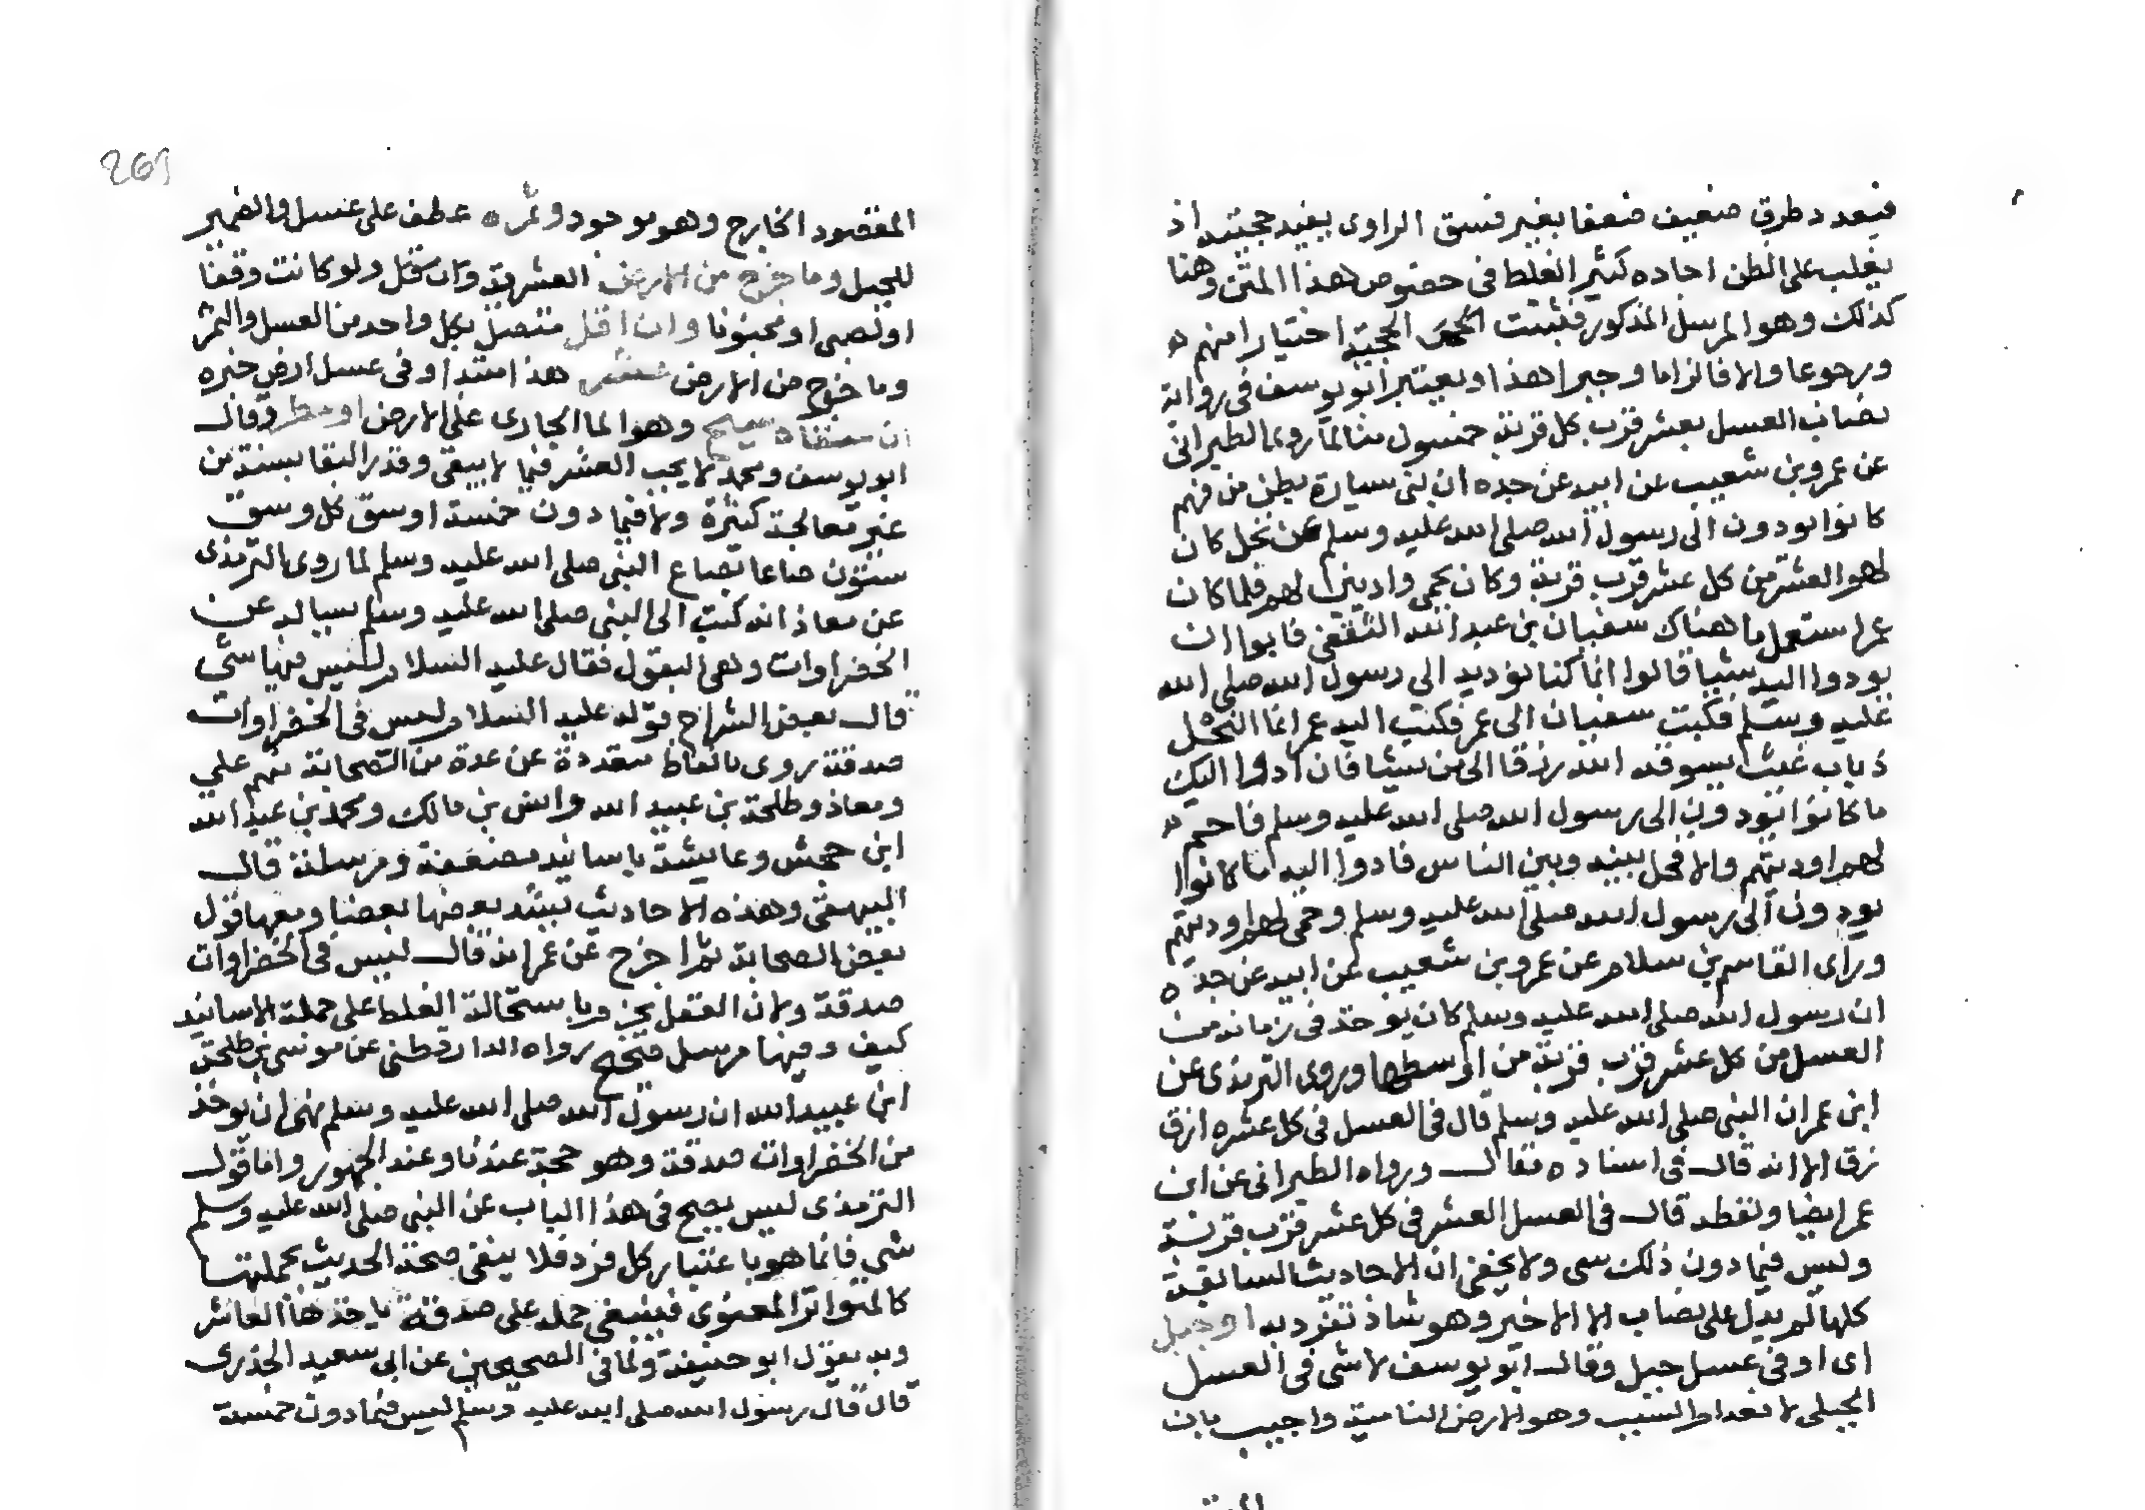 فتعدد طرق ضعيف ضعفا بغير فسق الراوى يفيد حجيته اذ
يغلب على الظن اجاده كثير الغلط فى خصوص هذا المتن وهنا
كذلك وهو المرسل المذكور فثبتت الحجية اختيارا منهم
ورجوعا والا فالزاما وجبرا هذا ويعتبر ابو يوسف فى رواية
نصاب العسل بعشر قرب كل قربة خمسون منا لما روى الطبرانى
عن عمرو بن شعيب عن ابيه عن جده ان بنى سيارة بطن من فهم
كانوا يودون الى رسول الله صلى الله عليه وسلم عن نحل كان
لهم العشر من كل عشر قرب قربة وكان يحمى واديين لهم فلما كان
عمر استعمل ما هناك سفيان بن عبد الله الثقفى فابوا ان
يودوا اليه شيا قالوا انما كنا نوديه الى رسول الله صلى الله
عليه وسلم فكتب سفيان الى عمر فكتب اليه عمر انما النحل
ذباب غيث يسوقه الله رزقا الى من يشا فان ادوا اليك
ما كانوا يودون الى رسول الله صلى الله عليه وسلم فاحم
لهم اوديتهم والا فخل بينه وبين الناس فادوا اليه ما كانوا
يودون الى رسول الله صلى الله عليه وسلم وحمى لهم اوديتهم
وراى القاسم بن سلام عن عمرو بن شعيب عن ابيه عن جده
ان رسول الله صلى الله عليه وسلم كان يوخذ فى زمانه من
العسل من كل عشر قرب قربة من اوسطها وروى الترمذى عن
ابن عمر ان النبى صلى الله عليه وسلم قال فى العسل فى كل عشره ازق
زق الا انه قال فى اسناده مقال ورواه الطبرانى عن ابن
عمر ايضا ولفظه قال فى العسل العشر فى كل عشر قرب قربة
وليس فيما دون ذلك شى ولا يخفى ان الاحاديث السابقة
كلها لم يدل على نصاب الا الاخير وهو شاذ تفرد به او جبل
اى او فى عسل جبل وقال ابو يوسف لا شى فى العسل
الجبلى لانعدام السبب وهو الارض النامية واجيب بان
المقصود الخارج وهو موجود وثمره عطف على عسل والضمير
للجبل وما خرج من الارض العشرية وان قل ولو كانت وقفا
او لصبى او مجنون وان اقل متصل بكل واحد من العسل والثمر
وما خرج من الارض عشر هذا مبتدا وفى عسل ارض خبره
ان سقاه سيح وهو الما الجارى على الارض او مطر وقال
ابو يوسف ومحمد لا يجب العشر فيما لا يبقى وقدر البقا بسنة من
غير معالجة كثيرة ولا فيما دون خمسة اوسق كل وسق
ستون صاعا بصاع النبى صلى الله عليه وسلم لما روى الترمذى
عن معاذ انه كتب الى النبى صلى الله عليه وسلم يساله عن
الخضراوات وهى البقول فقال عليه السلام ليس فيها شى
قال بعض الشراح قوله عليه السلام ليس فى الخضراوات
صدقة روى بالفاظ متعددة عن عدة من الصحابة منهم على
ومعاذ وطلحة بن عبيد الله وانس بن مالك ومحمد بن عبد الله
ابن جحش وعايشة باسانيد مضعفة ومرسلة قال
البيهقى وهذه الاحاديث يشد بعضها بعضا ومعها قول
بعض الصحابة ثم اخرج عن عمر انه قال ليس فى الخضراوات
صدقة ولان العقل يجزم باستحالة الغلط على جملة الاسانيد
كيف وفيها مرسل صحيح رواه الدارقطنى عن موسى بن طلحة
ابن عبيد الله ان رسول الله صلى الله عليه وسلم نهى ان يوخذ
من الخضراوات صدقة وهو حجة عندنا وعند الجمهور واما قول
الترمذى ليس يصح فى هذا الباب عن النبى صلى الله عليه وسلم
شى فانما هو باعتبار كل فرد فلا ينفى صحة الحديث بجملتها
كالمتواتر المعنوى فينبغى حمله على صدقة ياخذها العاشر
وبه يقول ابو حنيفة ولما فى الصحيحين عن ابى سعيد الخدرى
قال قال رسول الله صلى الله عليه وسلم ليس فيما دون خمسة